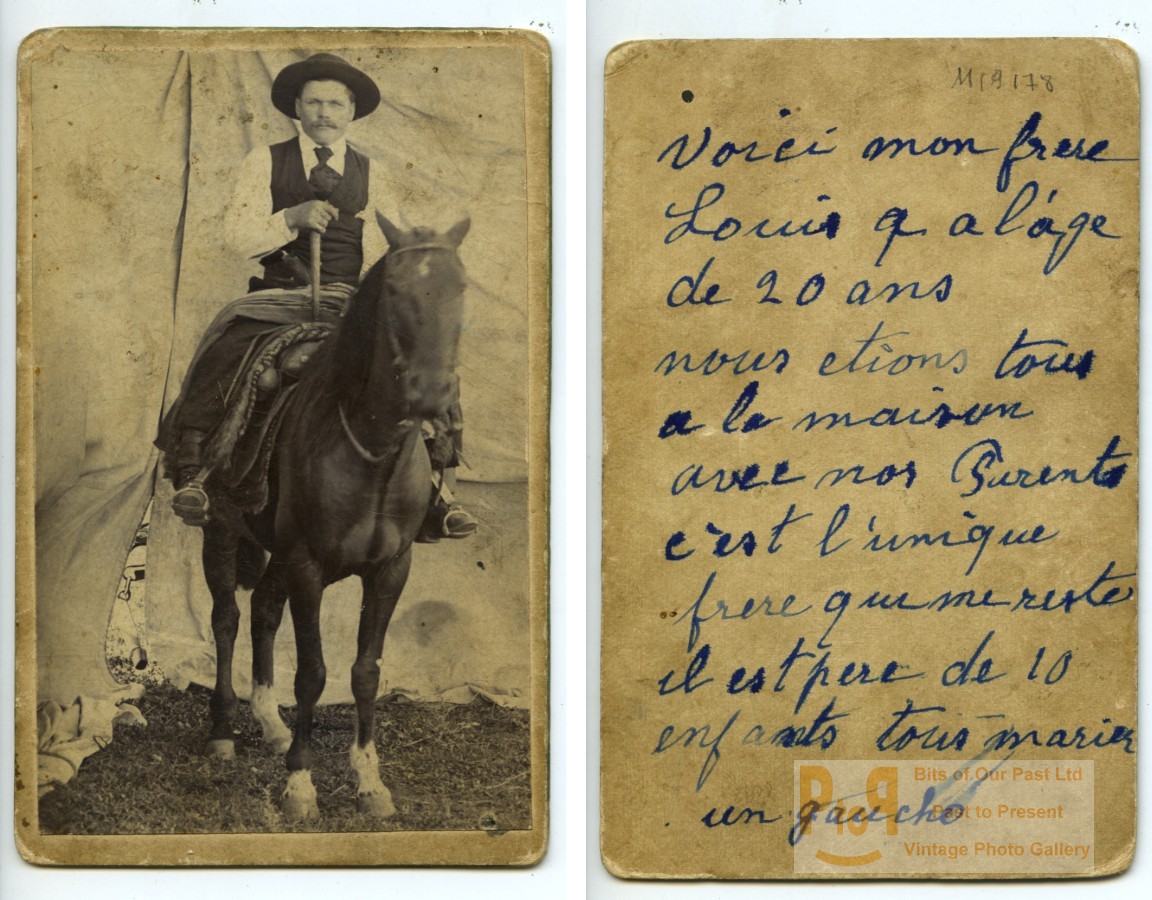 11/9178
Voici mon frere
Louis q a l'áge
de 20 ans
nous etions tous
a la maison
avec nos Parents
c'est l'unique
frere qui me reste
il est pere de 10
enfants tous marier
un gaucho
Bits of Our Past Ltd
Past to Present
Vintage Photo Gallery